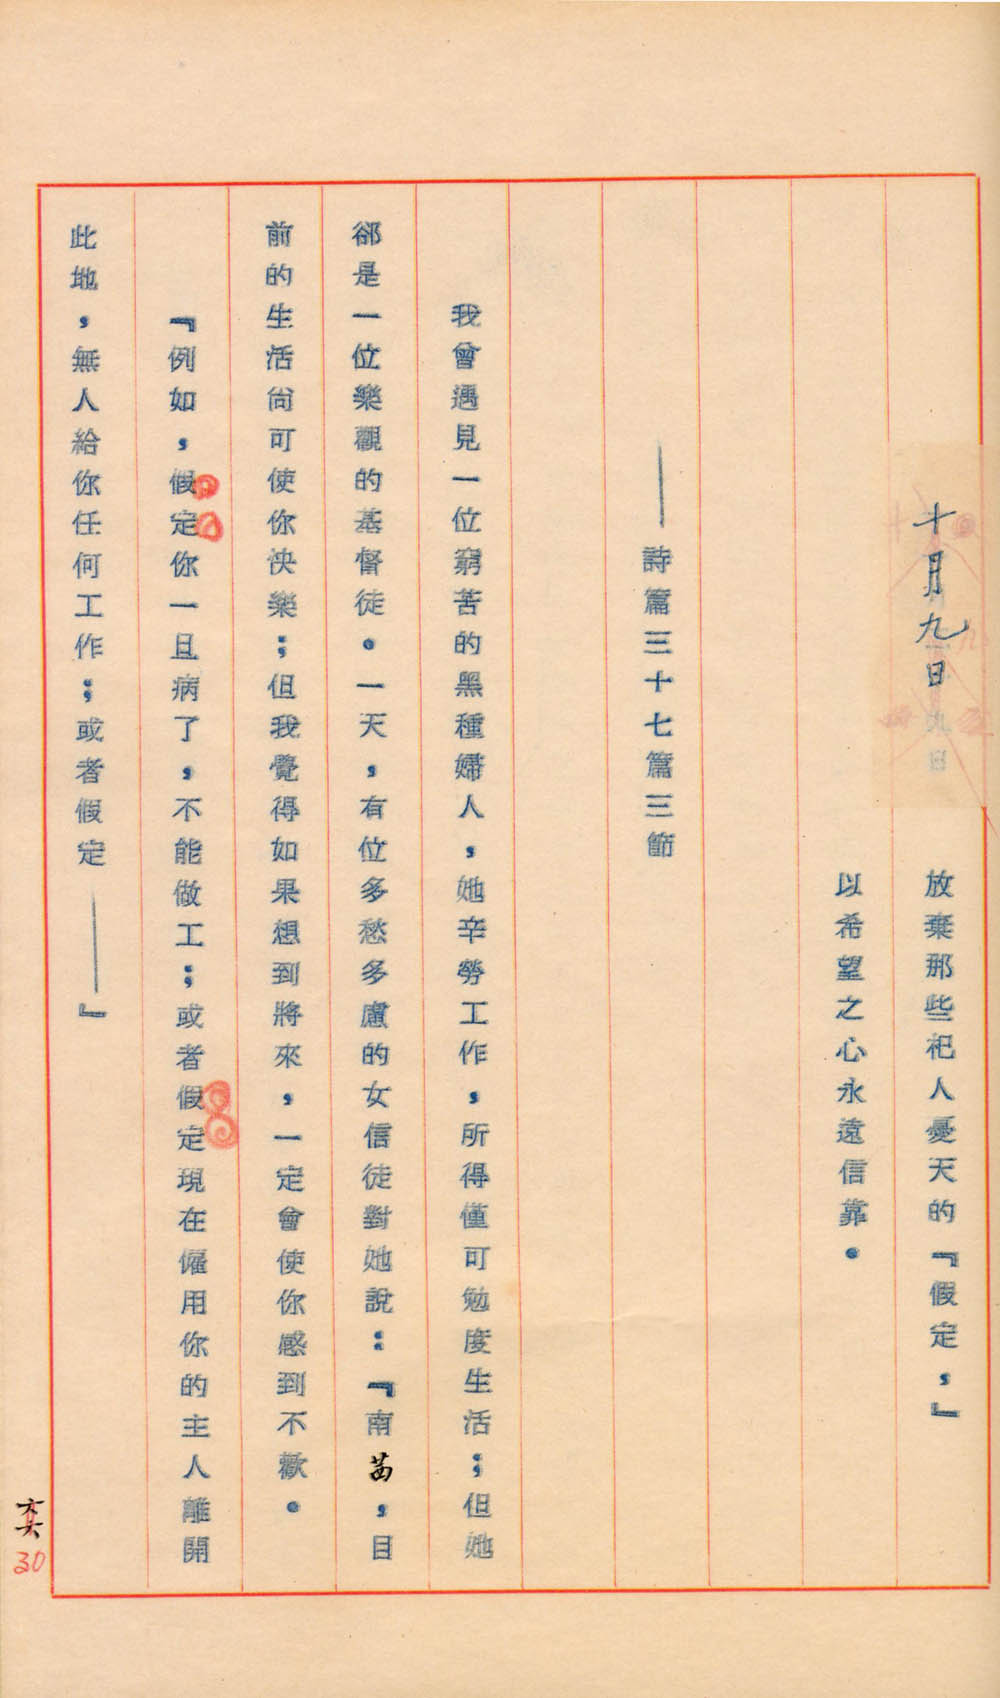 十月九日
放棄那些祀人憂天的『假定，』
以希望之心永遠信靠。
——詩篇三十七篇三節
我曾遇見一位窮苦的黑種婦人，她辛勞工作，所得僅可勉度生活；但她
卻是一位樂觀的基督徒。一天，有位多愁多慮的女信徒對她說：『南茜，目
前的生活尚可使你快樂；但我覺得如果想到將來，一定會使你感到不歡。
『例如，假定你一旦病了，不能做工；或者假定現在僱用你的主人離開
此地，無人給你任何工作；或者假定——』
30